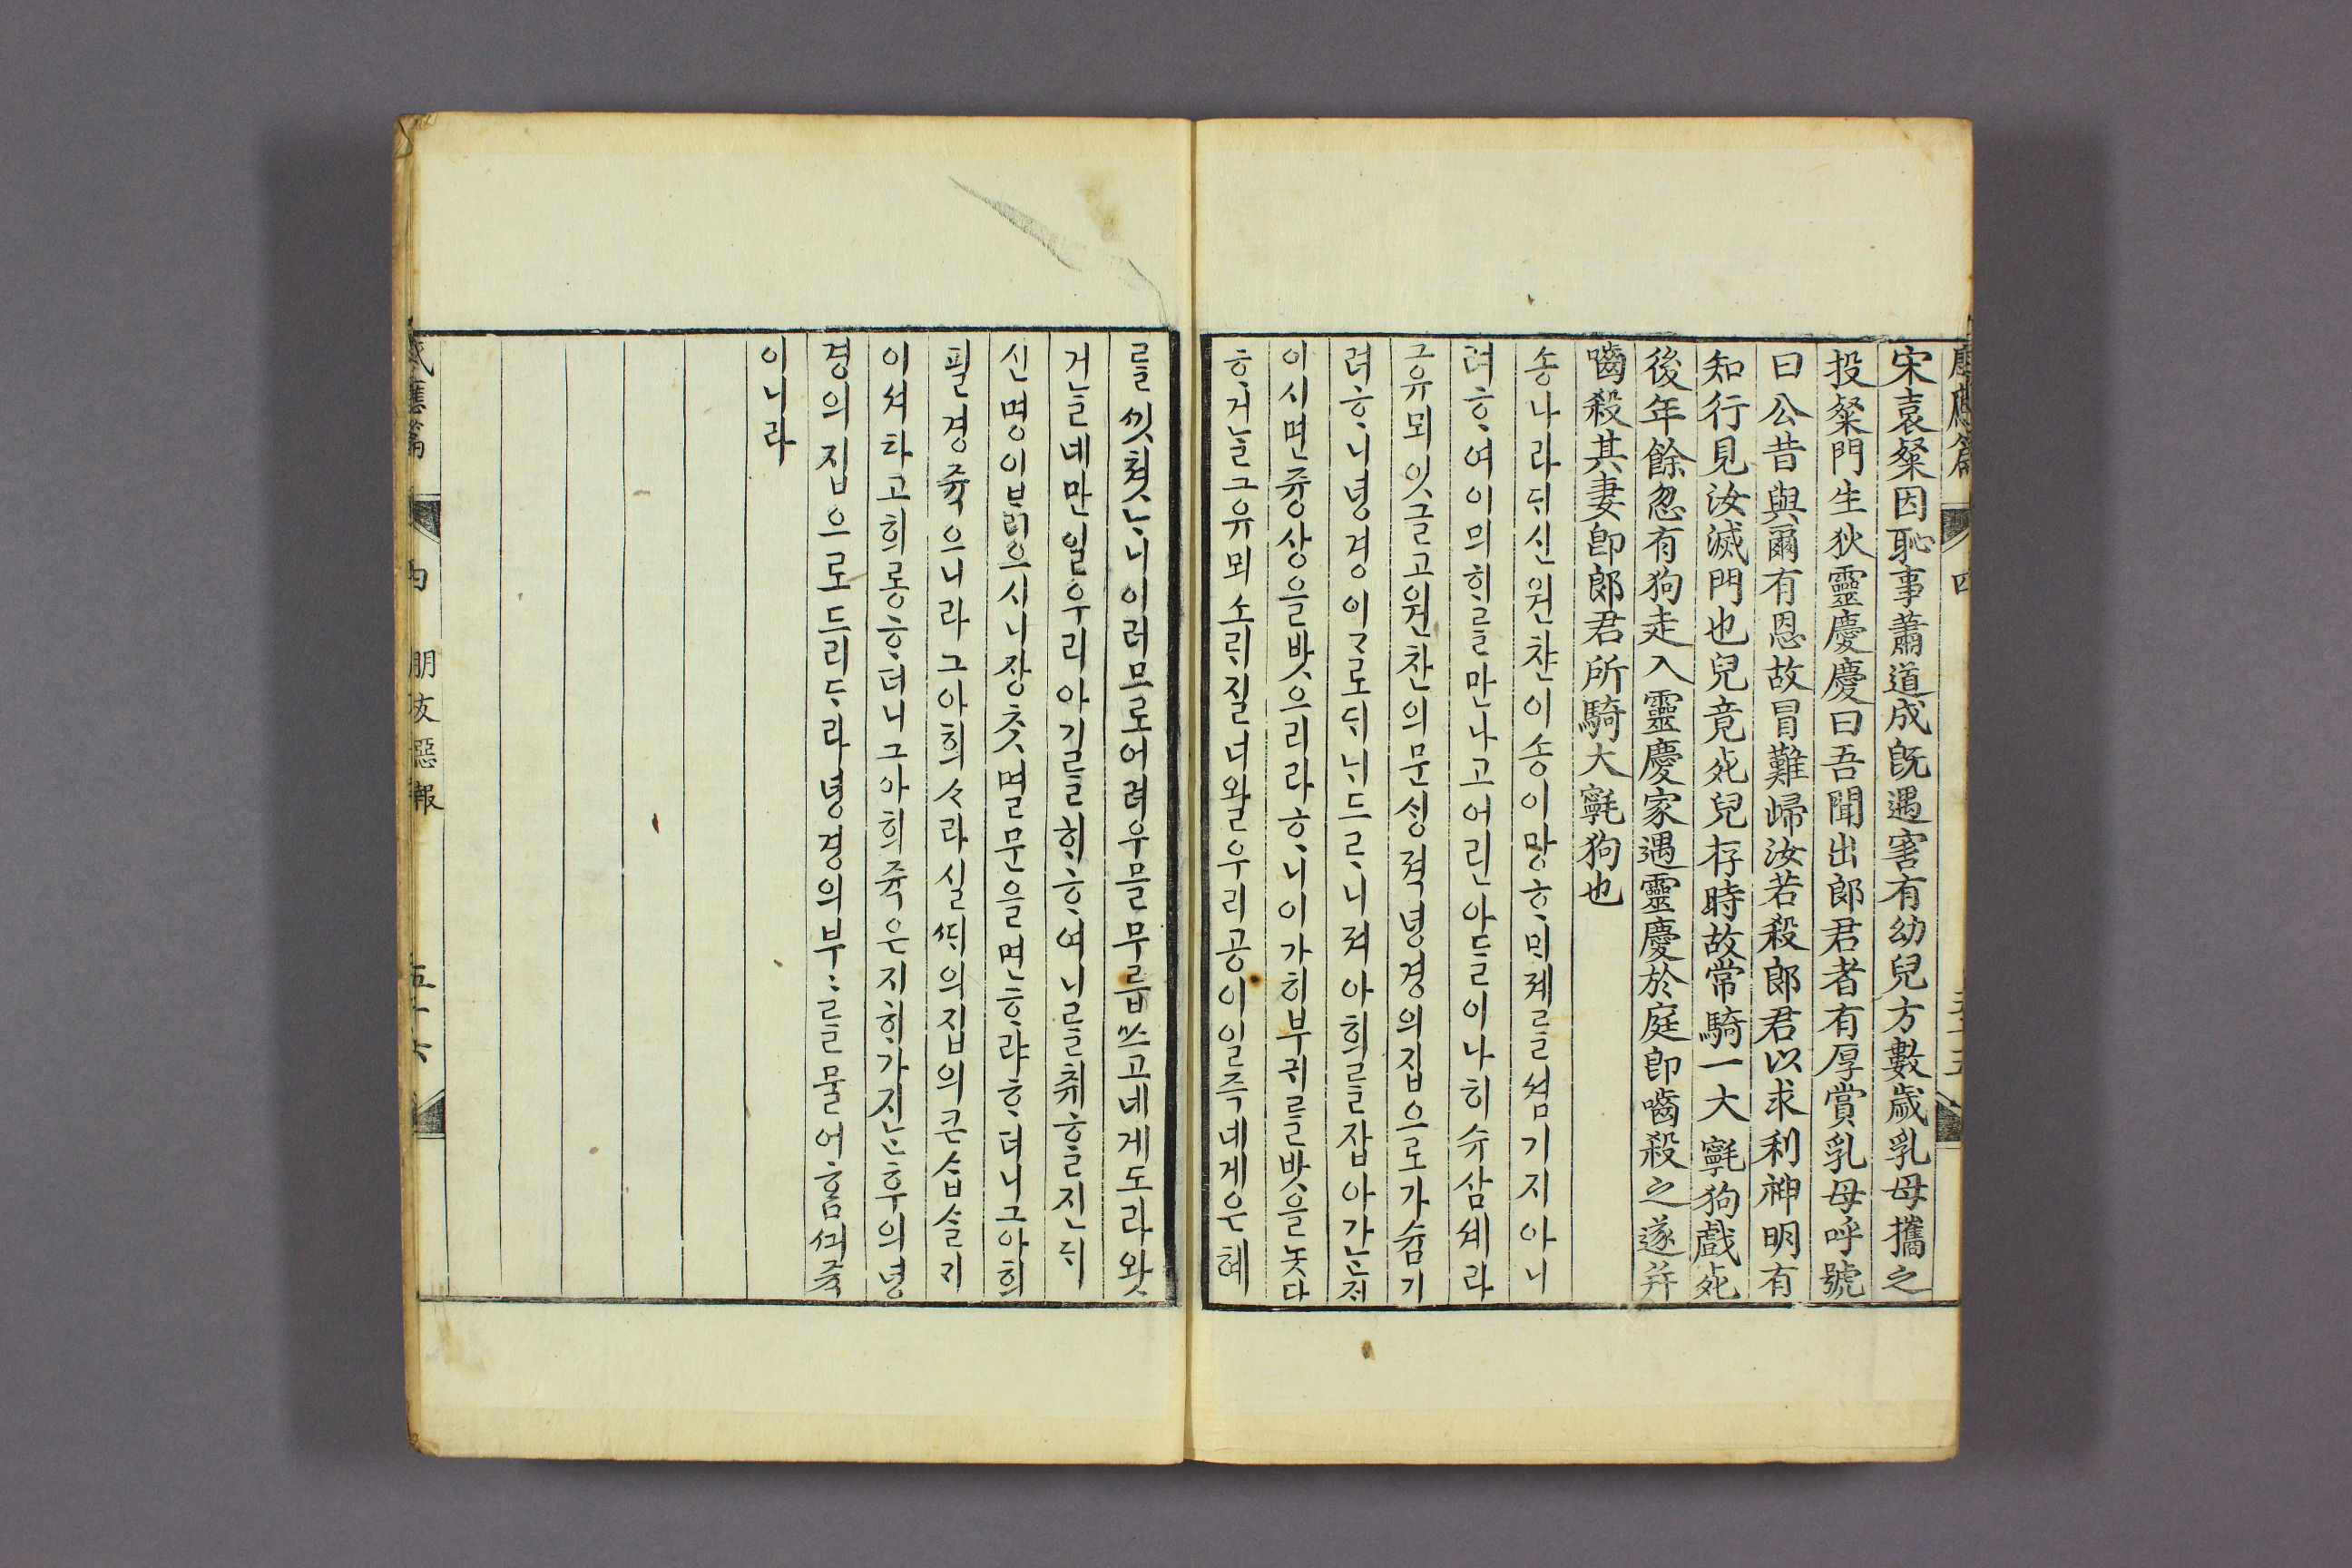 宋袁粲因恥事蕭道成旣遇害有幼兒方數歲乳母攜之
投粲門生狄靈慶慶曰吾聞出郞君者有厚賞乳母呼號
曰公昔與爾有恩故冒難歸汝若殺郞君以求利神明有
知行見汝滅門也兒竟死兒存時故常騎一大䮍狗戲死
後年餘忽有狗走入靈慶家遇靈慶於庭卽嚙殺之遂并
嚙殺其妻卽郞君所騎大䮍狗也
송나라ᄃᆡ신원찬이송이망ᄒᆞᄆᆡ졔를셤기지아니
려ᄒᆞ여이믜ᄒᆡ를만나고어린아들이나히수삼셰라
그유뫼잇글고원찬의문ᄉᆡᆼ젹녕경의집으로가숨기
려ᄒᆞ니녕경이ᄀᆞ로ᄃᆡᄂᆡ드르니져아희를잡아간ᄌᆡ
이시면즁상을밧으리라ᄒᆞ니이가히부귀를밧을놋다
ᄒᆞ거늘그유뫼소ᄅᆡ질너왈우리공이일즉네게은혜
를ᄭᅵ쳣ᄂᆞ니이러므로어려우믈무릅쓰고네게도라왓
거늘네만일우리아기를ᄒᆡᄒᆞ여니를취ᄒᆞᆯ진ᄃᆡ
신명이ᄇᆞᆰ으시니장ᄎᆞᆺ멸문을면ᄒᆞ랴ᄒᆞ더니그아희
필경죽으니라그아희ᄉᆞ라실ᄯᆡ의집의큰습슬ᄀᆡ
이셔타고희롱ᄒᆞ더니그아희죽은지ᄒᆡ가지난후의녕
경의집으로드리ᄃᆞ라녕경의부부를물어ᄒᆞᆷᄭᅴ죽
이니라
感應篇 内 朋友惡報 五十六